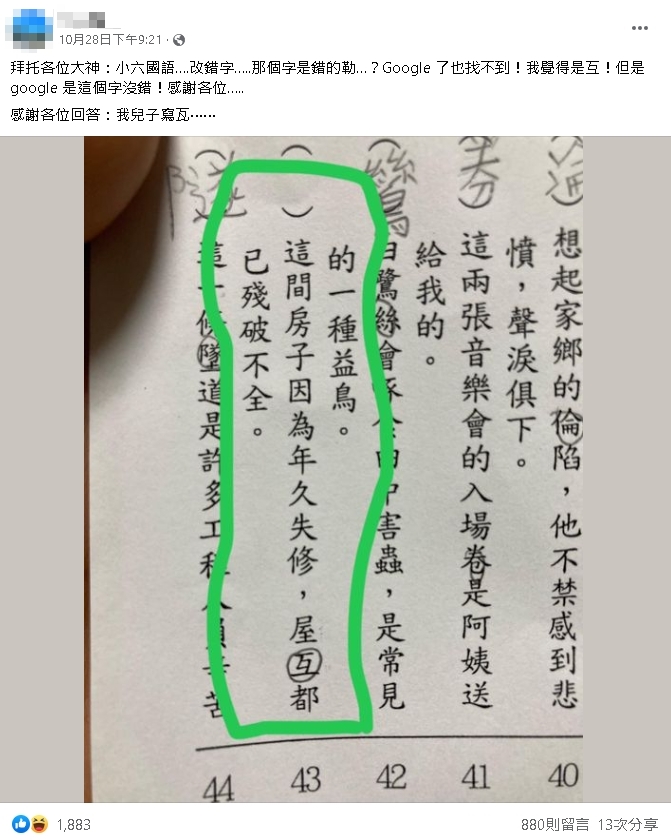 10月28日下午9:21
拜托各位大神：小六國語....改錯字.....那個字是錯的勒...？Google 了也找不到！我覺得是互！但是
google 是這個字沒錯！感謝各位.....
感謝各位回答：我兒子寫瓦⋯⋯
想起家鄉的倫陷，他不禁感到悲
憤，聲淚俱下。
券）這兩張音樂會的入場卷是阿姨送
給我的。
鷥 白鷺絲會啄食田中害蟲，是常見
的一種益鳥。
（ ）這間房子因為年久失修，屋互都
已殘破不全。
（隧）這一條墜道是許多工程人員辛苦
44 43 42 41 40
1,883
880則留言 13次分享